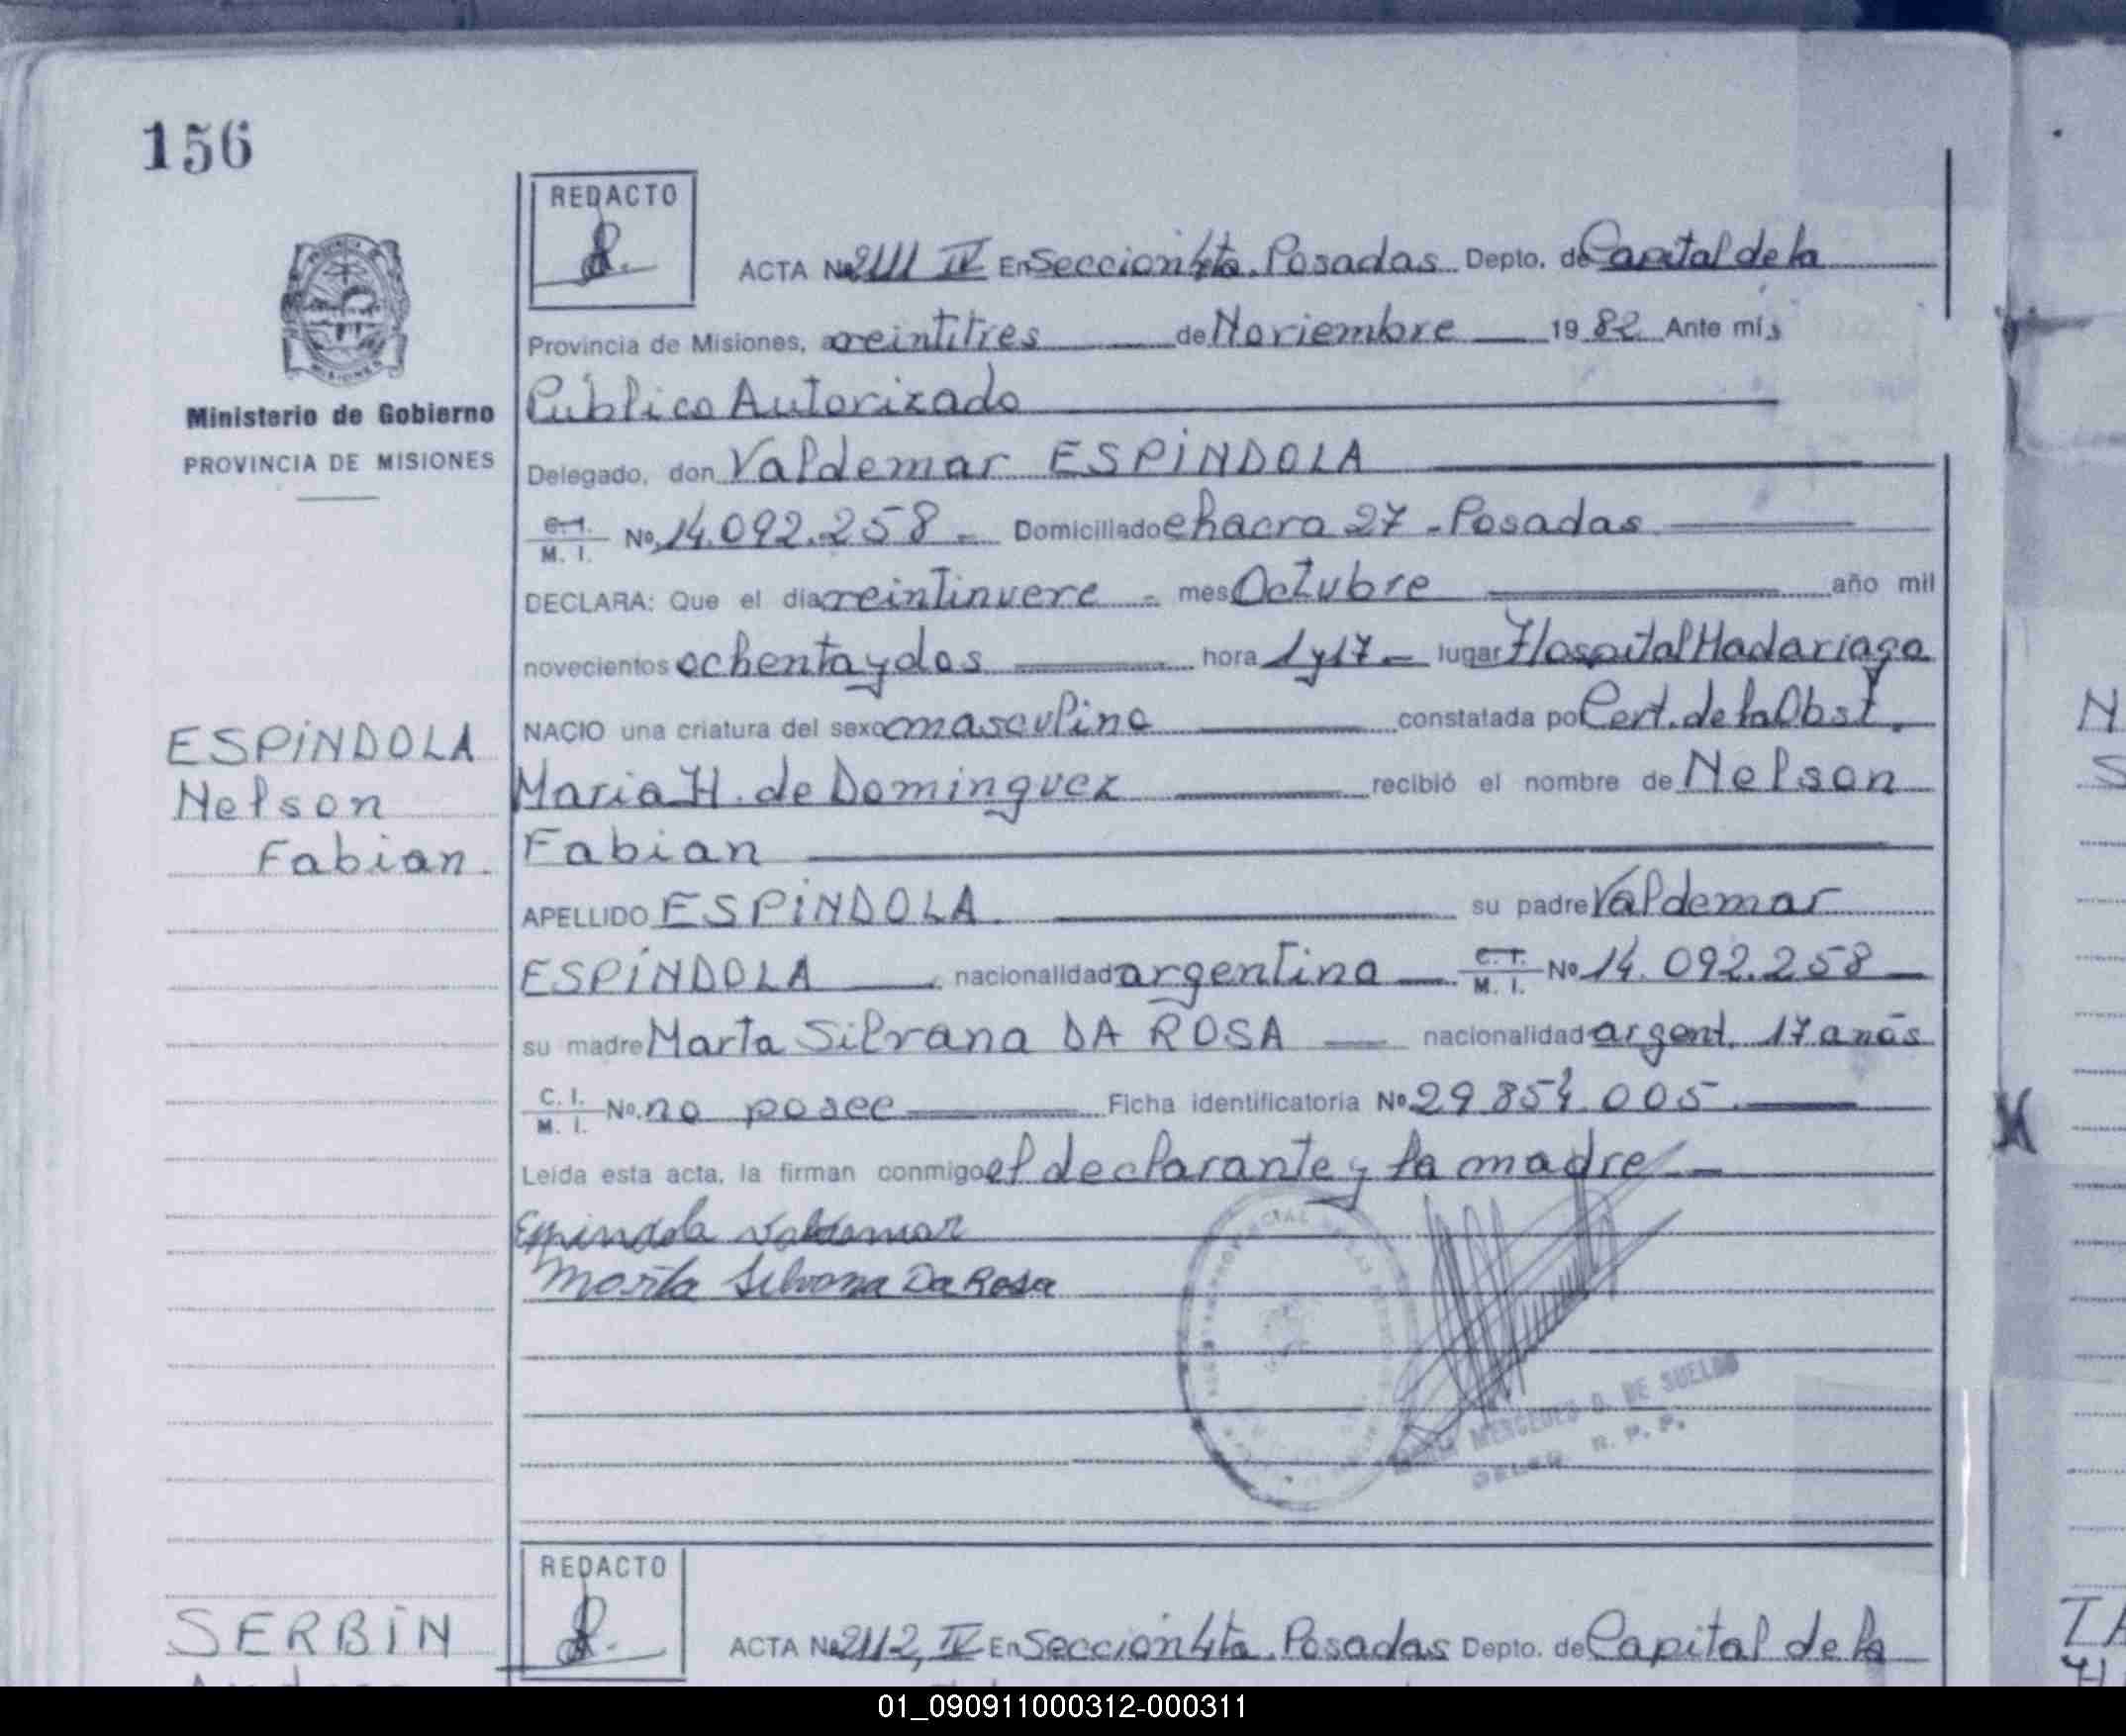 156
REDACTO
ACTA No 2111 IV En Sección 4ta. Posadas Depto. de Capital de la
Provincia de Misiones, a veintitres de Noviembre 1982 Ante mí,
Público Autorizado
Ministerio de Gobierno
PROVINCIA DE MISIONES
Delegado, don Valdemar ESPÍNDOLA
C.I. M. I. No. 14.092.258 - Domiciliado chacra 27 - Posadas
DECLARA: Que el día veintinueve - mes Octubre año mil
novecientos ochenta y dos hora 1 y 17 - lugar Hospital Madariaga
NACIO una criatura del sexo masculino constatada por Cert. de la Obst.
Maria H. de Dominguez recibió el nombre de Nelson
Fabian
ESPÍNDOLA
Nelson
Fabian.
APELLIDO ESPÍNDOLA su padre Valdemar
ESPÍNDOLA, nacionalidad argentina C.I. M. I. No 14.092.258
su madre Marta Silvana DA ROSA nacionalidad argent. 17 años
C. I. M. I. No. no posee Ficha identificatoria No 29.854.005
Leída esta acta, la firman conmigo el declarante y la madre
Espindola Valdemar
Marta Silvana Da Rosa
MERCEDES G. DE SUELDO
DELEG. R. P. P.
REDACTO
SERBÍN
ACTA No 2112, IV En Sección 4ta. Posadas Depto. de Capital de la
01_090911000312-000311